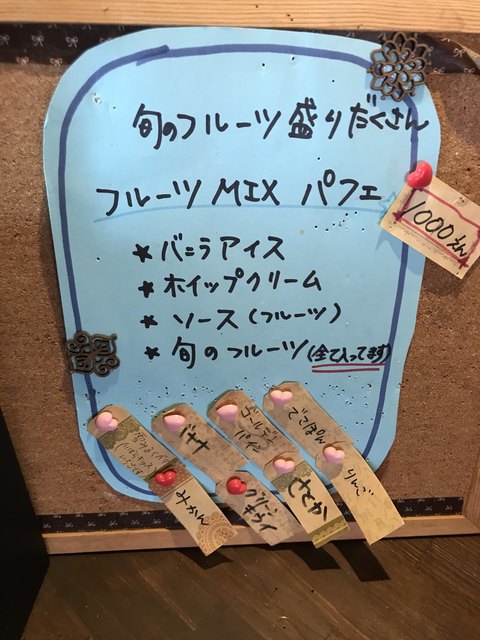 旬のフルーツ盛りだくさん
フルーツ MIX パフェ
1000えん
★ バニラアイス
★ ホイップクリーム
★ ソース(フルーツ)
★ 旬のフルーツ(全て入ってます)
バナナ
ゴールデン
パイン
でこぽん
みかん
グリーン
キウイ
せとか
りんご